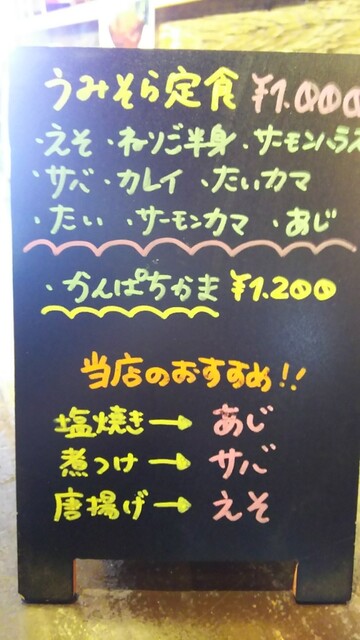 うみそら定食 ¥1.000
・えそ ・ネリゴ半身 ・サーモンハラス
・サバ ・カレイ ・たいカマ
・たい ・サーモンカマ ・あじ
・かんぱちかま ¥1.200
当店のおすすめ!!
塩焼き→ あじ
煮つけ→ サバ
唐揚げ→ えそ